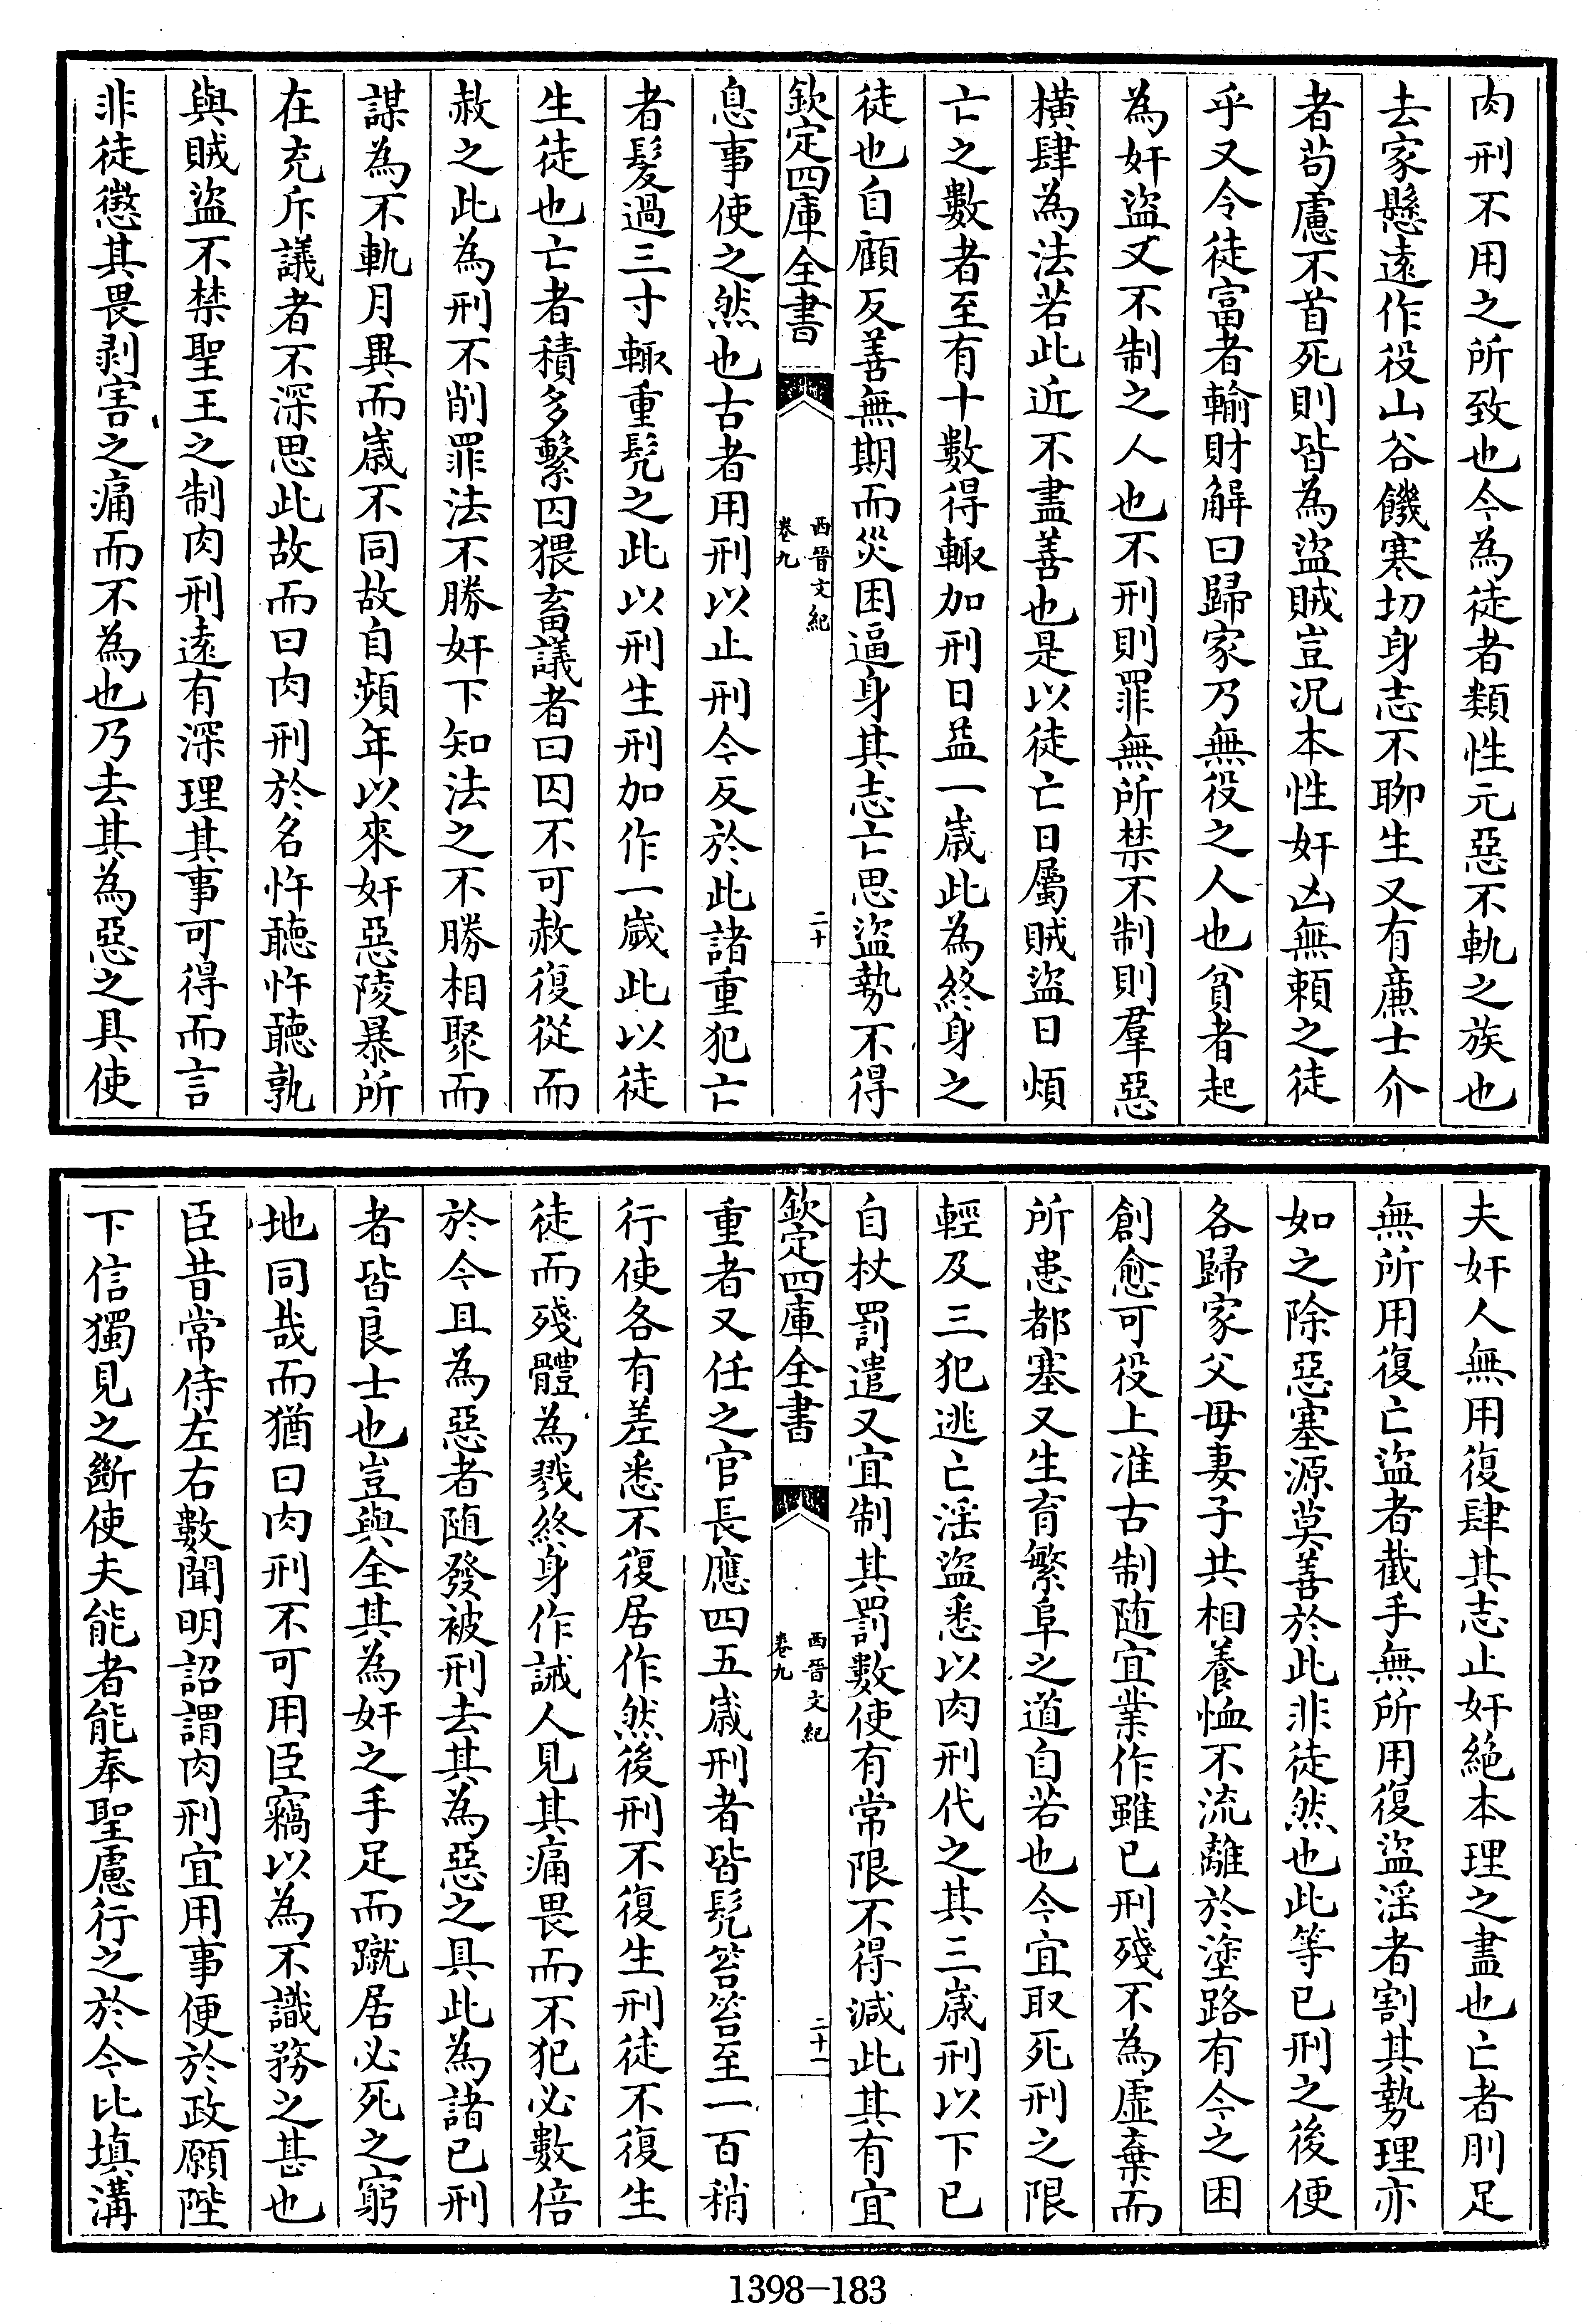 肉刑不用之所致也今為徒者類性元惡不軌之族也
去家懸遠作役山谷饑寒切身志不聊生又有廉士介
者苟慮不首死則皆為盜賊豈況本性奸凶無賴之徒
乎又令徒富者輸財解日歸家乃無役之人也貧者起
為奸盜又不制之人也不刑則罪無所禁不制則羣惡
横肆為法若此近不盡善也是以徒亡日屬賊盜日煩
亡之數者至有十數得輙加刑日益一歲此為終身之
徒也自顧反善無期而災困逼身其志亡思盜勢不得
欽定四庫全書
西晉文紀
卷九
二十
息事使之然也古者用刑以止刑今反於此諸重犯亡
者髮過三寸輙重髠之此以刑生刑加作一歲此以徒
生徒也亡者積多繫囚猥畜議者曰囚不可赦復從而
赦之此為刑不削罪法不勝奸下知法之不勝相聚而
謀為不軌月異而歲不同故自頻年以來奸惡陵暴所
在充斥議者不深思此故而曰肉刑於名忤聽忤聽孰
與賊盜不禁聖王之制肉刑遠有深理其事可得而言
非徒懲其畏剥害之痛而不為也乃去其為惡之具使
夫奸人無用復肆其志止奸絶本理之盡也亡者刖足
無所用復亡盜者截手無所用復盜淫者割其勢理亦
如之除惡塞源莫善於此非徒然也此等已刑之後便
各歸家父母妻子共相養恤不流離於塗路有今之困
創愈可役上准古制随宜業作雖已刑殘不為虛棄而
所患都塞又生育繁阜之道自若也今宜取死刑之限
輕及三犯逃亡淫盜悉以肉刑代之其三歲刑以下已
自杖罰遣又宜制其罰數使有常限不得減此其有宜
欽定四庫全書
西晉文紀
卷九
二十一
重者又任之官長應四五歲刑者皆髠笞笞至一百稍
行使各有差悉不復居作然後刑不復生刑徒不復生
徒而殘體為戮終身作誡人見其痛畏而不犯必數倍
於今且為惡者随發被刑去其為惡之具此為諸已刑
者皆良士也豈與全其為奸之手足而蹴居必死之窮
地同哉而猶曰肉刑不可用臣竊以為不識務之甚也
臣昔常侍左右數聞明詔謂肉刑宜用事便於政願陛
下信獨見之斷使夫能者能奉聖慮行之於今比填溝
1398—183